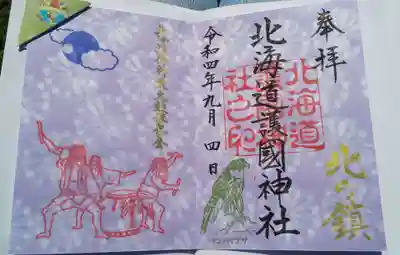 奉拝
北海道護國神社
北海道
社之印
北の鎮
令和四年九月四日